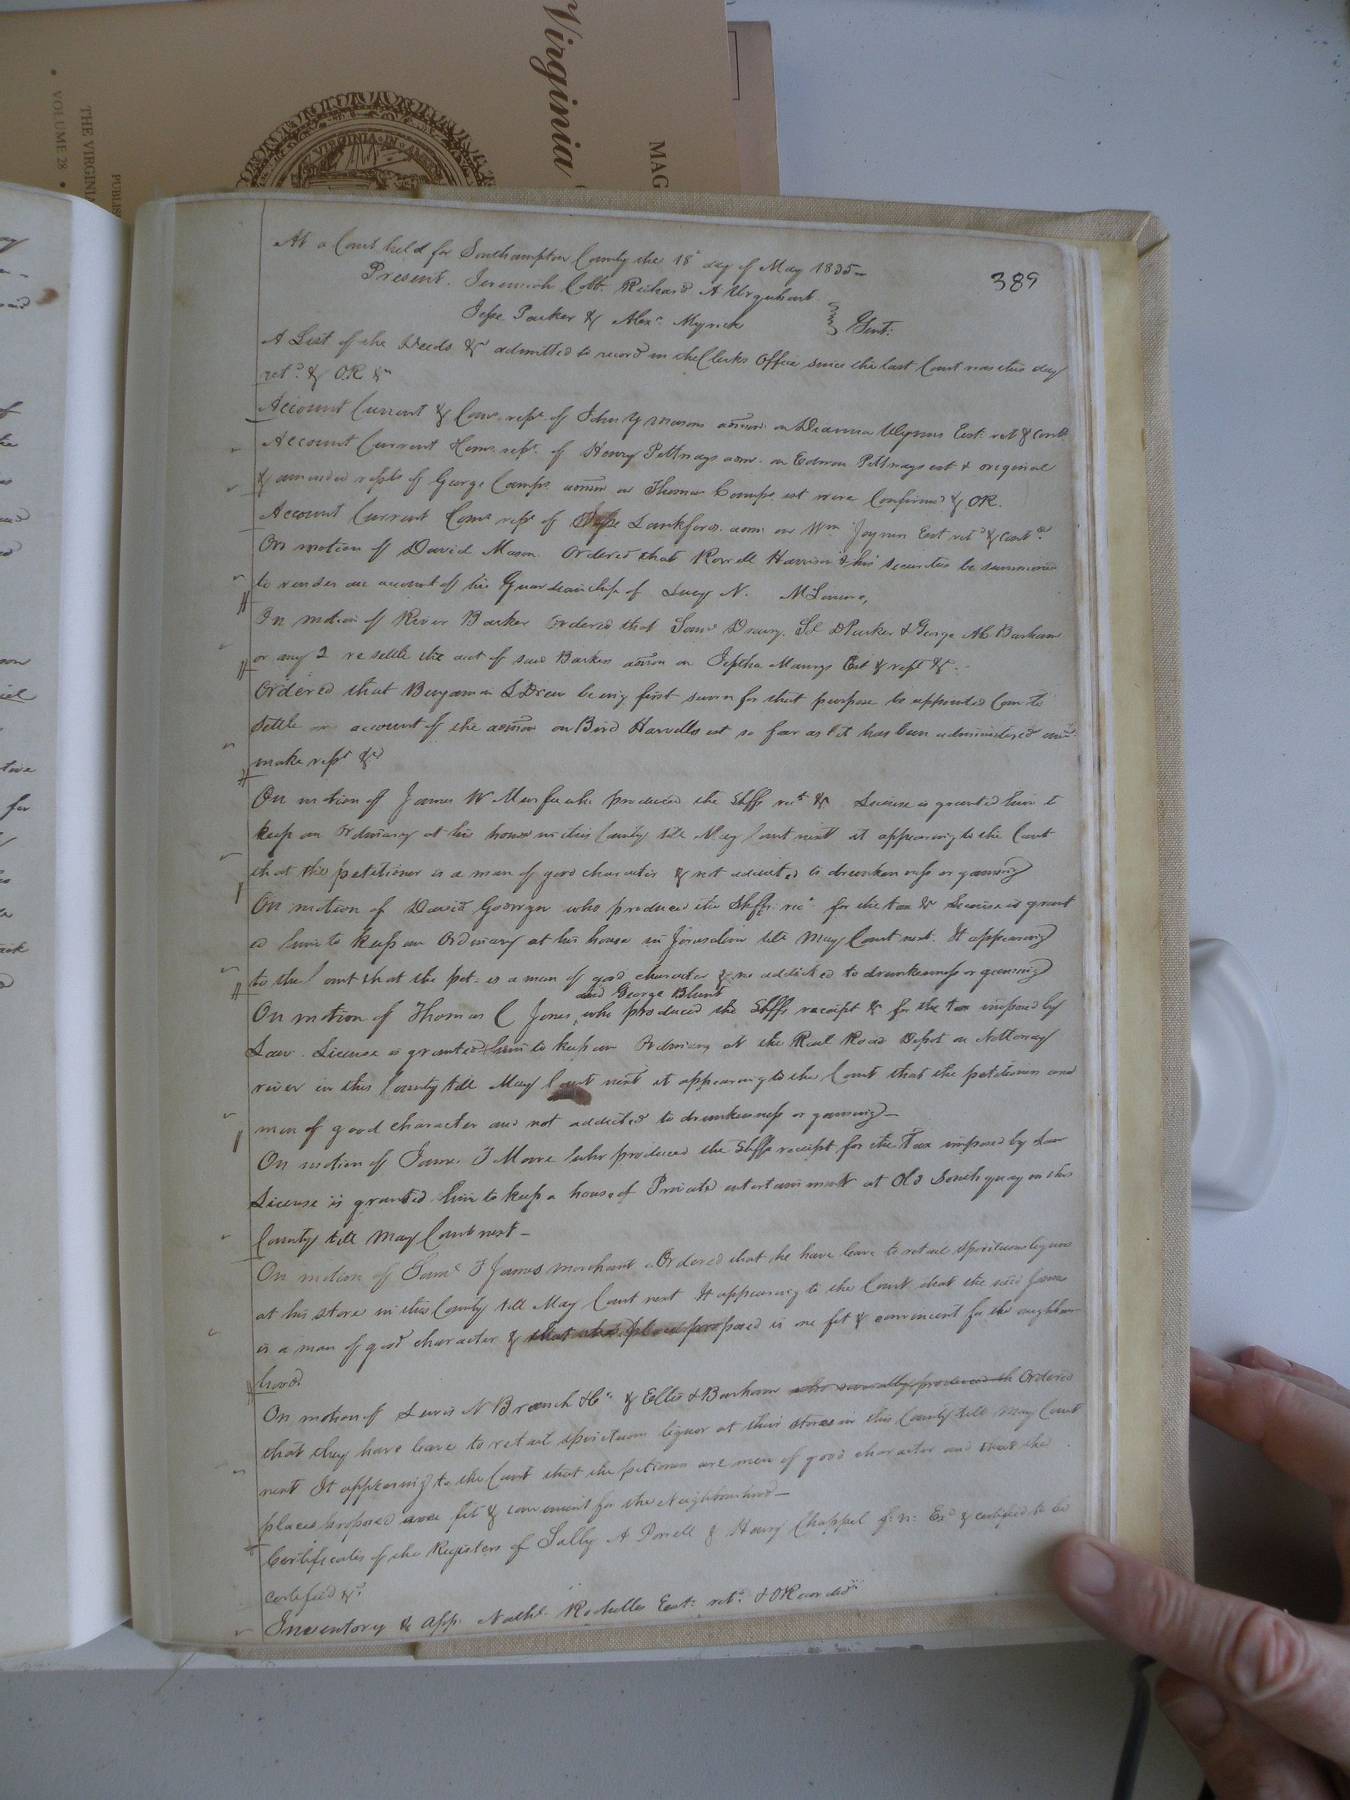 Virginia
MAG
THE VIRGINIA
PUBLIS
• VOLUME 28 •
VIRGINIA
389
At a Court held for Southampton County the 18th day of May 1835
Present. Jeremiah Cobb. Richard A Urquhart
Jesse Parker & Alexr. Myrick } Gent:
A List of the Deeds &c admitted to record in the Clerks Office since the last Court was this day
retd. & OR &c
Account Current & Coms. rept. of John Y Masons admn. on Est: ret & conf
Account Current Coms. rept. of Henry Pettways adm. on Edwin Pettways est & original
& amended repts of George Camps admn on Thomas Camps est were Confirmed & OR.
Account Current Coms rept of Jesse Lankfords. adm: on Wm Joyner Est retd & Confd.
On motion of David Mason. Ordered that Harrison & his securities be summoned
to render an account of his Guardianship of Lucy N.
On motion of River Barker ordered that Saml Drury. Sl D Parker & George Barham
or any 2 re settle the acct of said Barkers admon on Jeptha Maurys Est & rept &c.
Ordered that Benjamin S Drew being first sworn for that purpose be appointed Com to
settle an account of the admon on Bird Harvells est so far as it has been administered and
make rept &c
On motion of James W Murfee who produced the Shffs rect &c License is granted him to
keep an Ordinary at his house in this County till May Court next it appearing to the Court
that the petitioner is a man of good character & not addicted to drunkenness or gaming
On motion of David Goodwyn who produced the Shffs. rect for the tax &c License is grant
ed him to keep an Ordinary at his house in Jerusalem till May Court next. It appearing
to the Court that the pet. is a man of good character & no addicted to drunkenness or gaming
and George Blunt
On motion of Thomas C Jones, who produced the Shffs receipt &c for the tax imposed by
Law. License is granted him to keep an Ordinary at the Rail Road Depot on Nottoway
river in this County till May Court next it appearing to the Court that the petitioners are
men of good character and not addicted to drunkenness or gaming
On motion of T Moore who produced the Shffs receipt for the Tax imposed by Law
License is granted him to keep a house of Private entertainment at Old South quay in this
County till May Court next
On motion of Saml T James merchant Ordered that he have leave to retail spirituous liquor
at his store in this County till May Court next It appearing to the Court that the said James
is a man of good character & that the place proposed is one fit & convenient for the neighbor
hood
On motion of Lewis N Branch & Co & Ellis & Barham who severally produced th Ordered
that they have leave to retail spirituous liquor at their stores in this County till May Court
next It appearing to the Court that the petitioners are men of good character and that the
places proposed are fit & convenient for the Neighbourhood
Certificates of the Registers of Sally A & Henry Chappel f. n: Exd & certified to be
certified &c
Inventory & App: Nathl. Rochelles Est: retd. & ORecorded